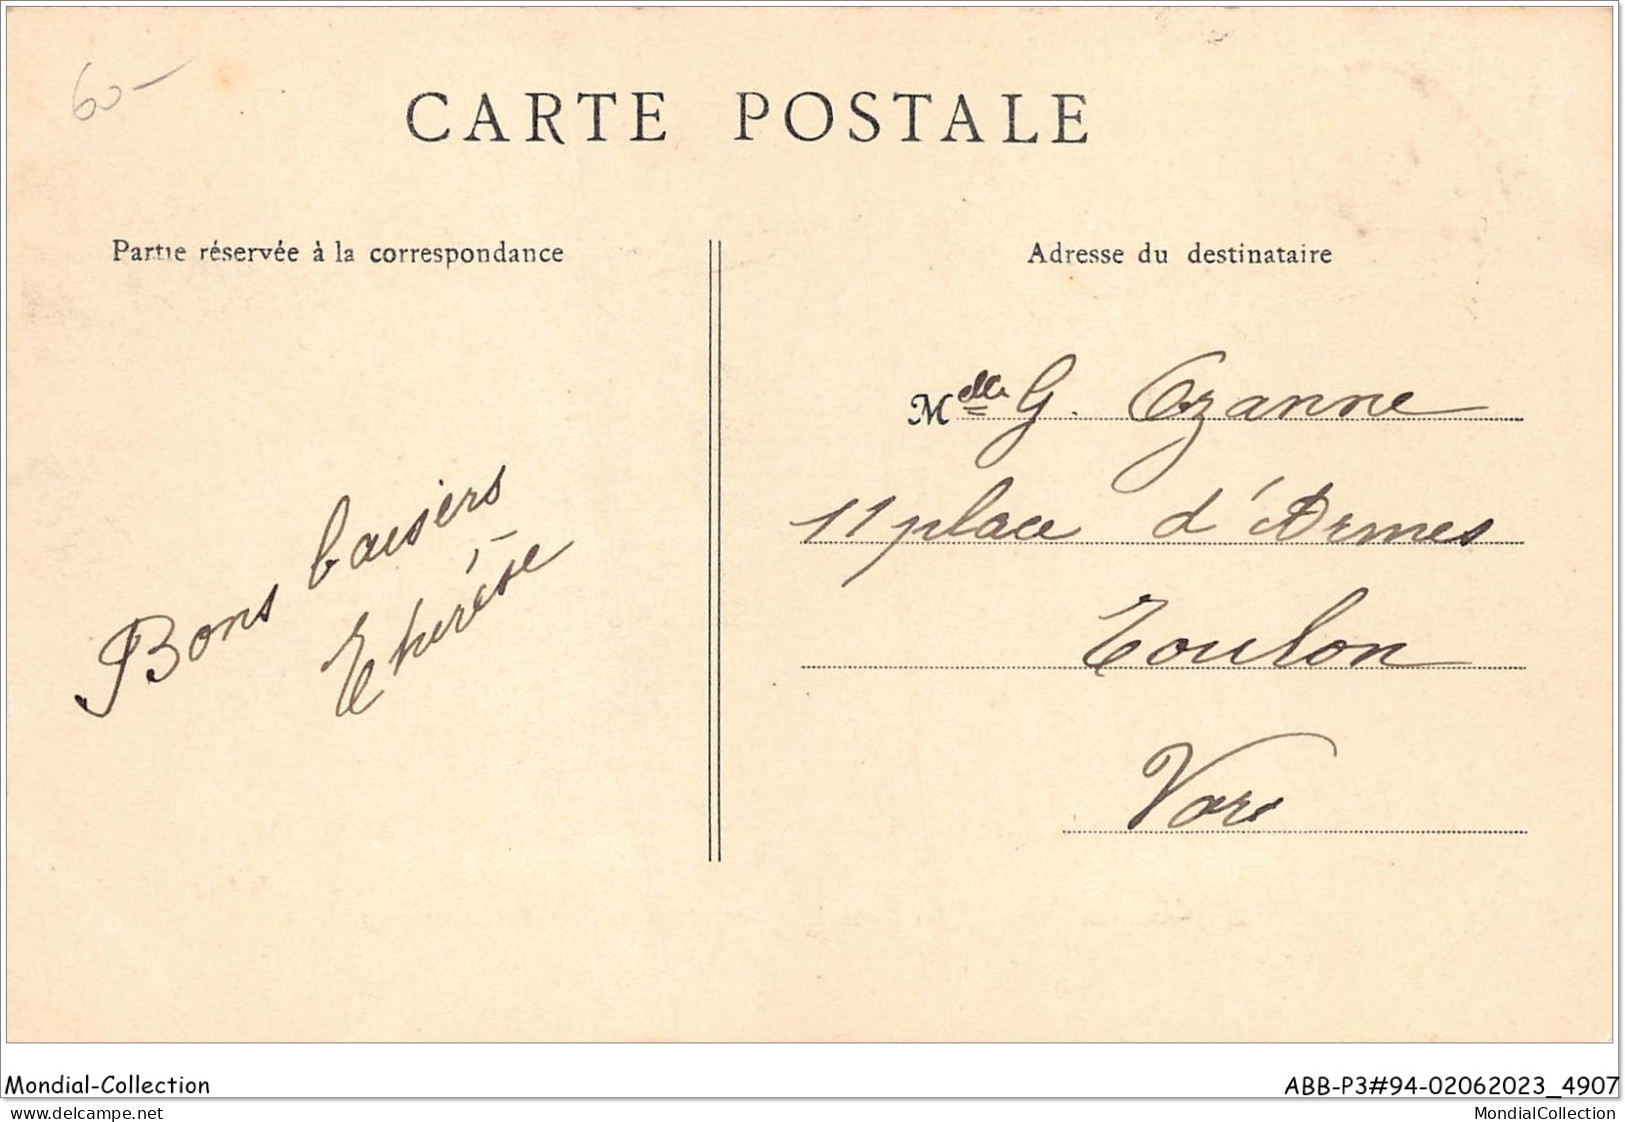 60-
CARTE POSTALE
Partie réservée à la correspondance
Adresse du destinataire
Bons baisers
Thérèse
Melle G. Ozanne
11 place d'Armes
Toulon
Var
Mondial-Collection
ABB-P3#94-02062023_4907
delcampe.net
MondialCollection